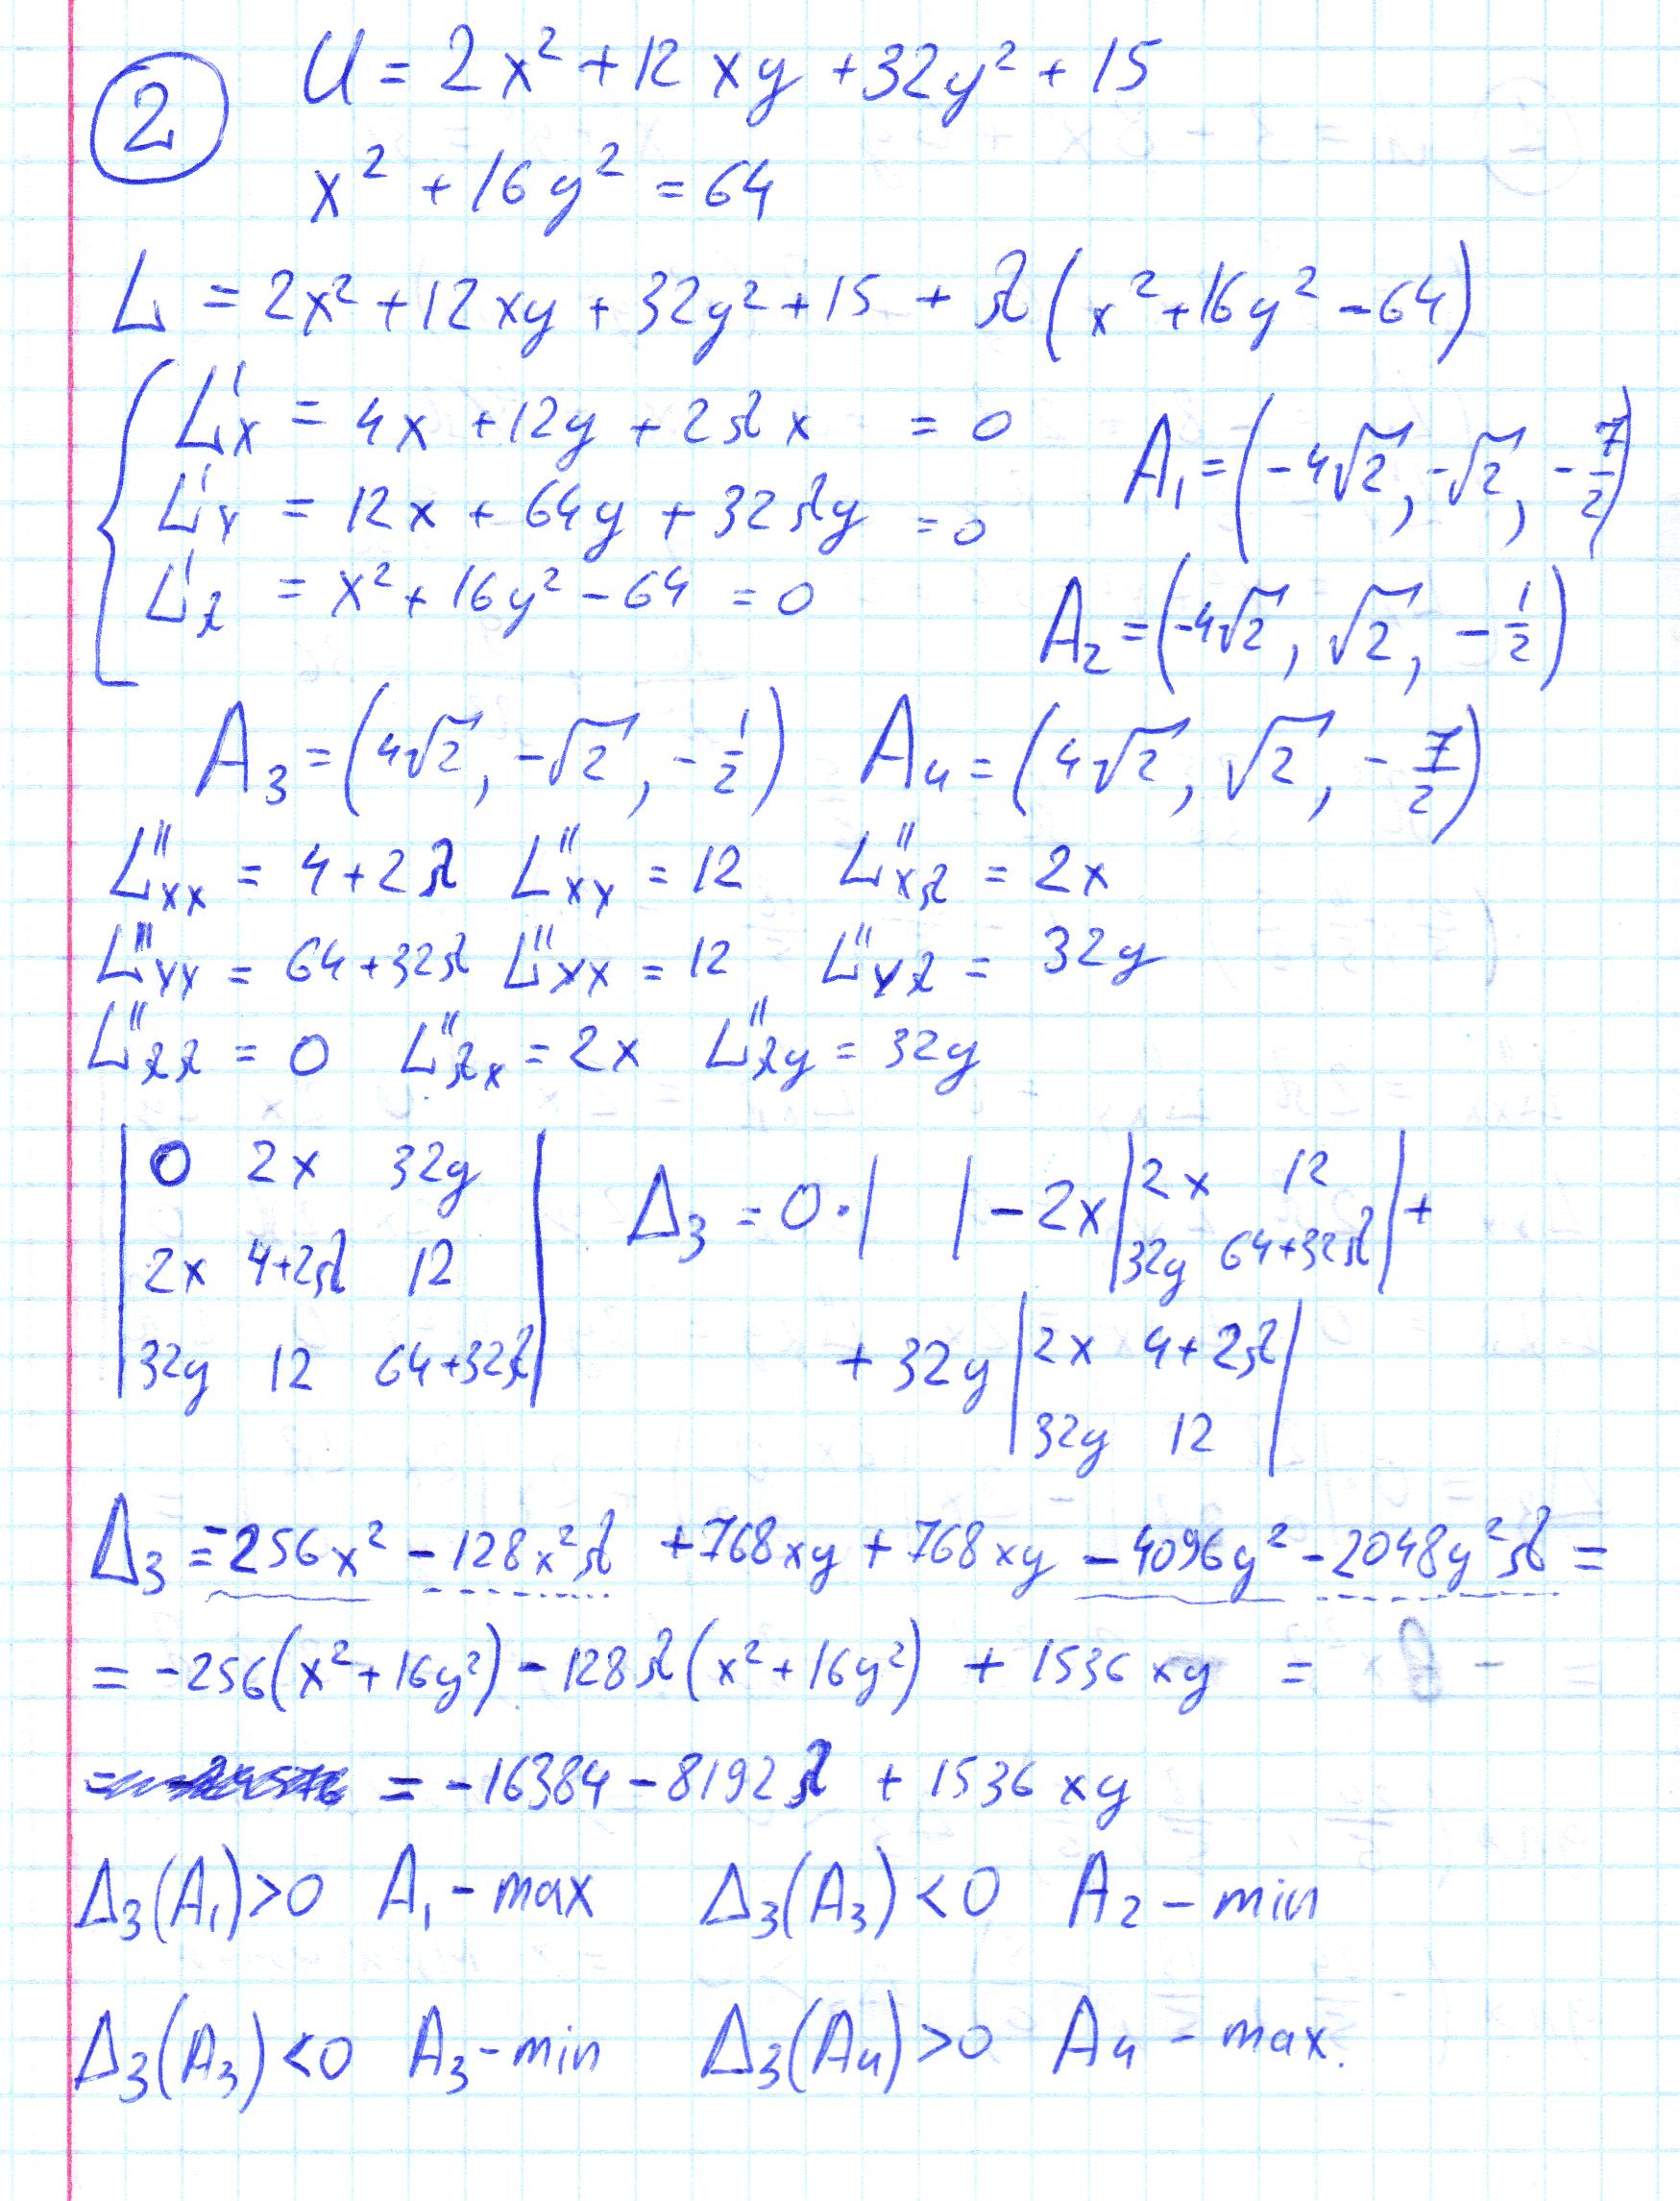 ② U = 2x² + 12xy + 32y² + 15
x² + 16y² = 64
L = 2x² + 12xy + 32y² + 15 + λ(x² + 16y² - 64)
L'x = 4x + 12y + 2λx = 0
L'y = 12x + 64y + 32λy = 0
L'λ = x² + 16y² - 64 = 0
A₁ = (-4√2, -√2, -7/2)
A₂ = (-4√2, √2, -1/2)
A₃ = (4√2, -√2, -1/2) A₄ = (4√2, √2, -7/2)
L''xx = 4 + 2λ L''xy = 12 L''xλ = 2x
L''yy = 64 + 32λ L''yx = 12 L''yλ = 32y
L''λλ = 0 L''λx = 2x L''λy = 32y
| 0 2x 32y |
| 2x 4+2λ 12 |
| 32y 12 64+32λ |
Δ₃ = 0·| | - 2x |2x 12; 32y 64+32λ| +
+ 32y |2x 4+2λ; 32y 12|
Δ₃ = -256x² - 128x²λ + 768xy + 768xy - 4096y² - 2048y²λ =
= -256(x² + 16y²) - 128λ(x² + 16y²) + 1536xy =
= -16384 - 8192λ + 1536xy
Δ₃(A₁) > 0 A₁ - max Δ₃(A₃) < 0 A₂ - min
Δ₃(A₃) < 0 A₃ - min Δ₃(A₄) > 0 A₄ - max.